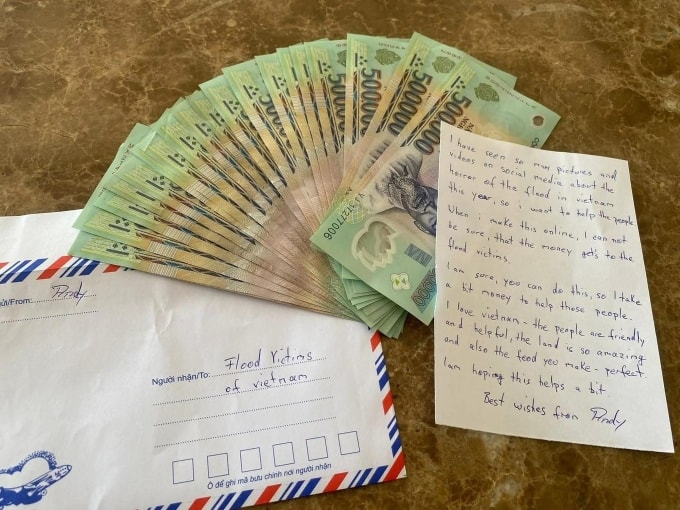 500.000
500000
500.000
277006
I have seen so many pictures and
videos on social media about the
horror of the flood in vietnam
this year, so i want to help the people.
When i make this online, I can not
be sure, that the money gets to the
flood victims.
I am sure, you can do this, so I take
a bit money to help those people.
I love vietnam - the people are friendly
and helpful, the land is so amazing
and also the food you make - perfect.
I am hoping this helps a bit.
Best wishes from
From:
Người nhận/To: Flood Victims
of vietnam
Ô để ghi mã bưu chính nơi người nhận